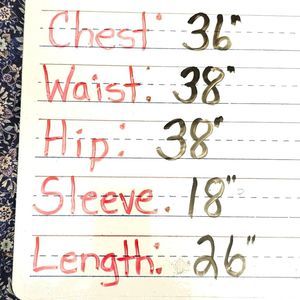 Chest: 36"
Waist: 38"
Hip: 38"
Sleeve. 18"
Length: 26"